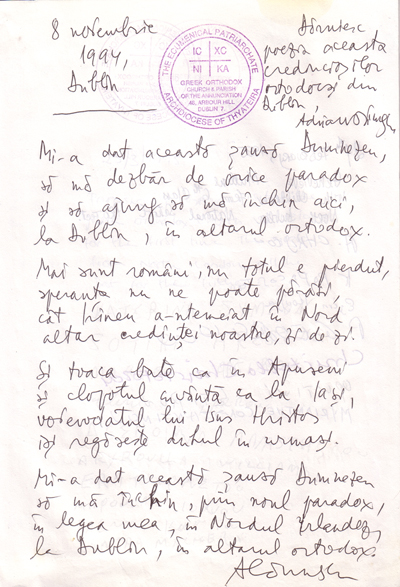 8 noiembrie
1994,
Dublin
THE ECUMENICAL PATRIARCHATE
IC XC
NI KA
GREEK ORTHODOX
CHURCH & PARISH
OF THE ANNUNCIATION
46, ARBOUR HILL
DUBLIN 7.
ARCHDIOCESE OF THYATEIRA
Dăruiesc
poezia aceasta
credincioșilor
ortodocși din
Dublin,
Mi-a dat această șansă Dumnezeu,
să mă dezbăr de orice paradox
și să ajung să mă închin aici,
la Dublin, în altarul ortodox.
Mai sunt români, nu totul e pierdut,
speranța nu ne poate părăsi,
cât Irineu a-ntemeiat în Nord
altar credinței noastre, zi de zi.
Și toaca bate ca în Apuseni
și clopotul cuvântă ca la Iași,
voievodatul lui Isus Hristos
își regăsește duhul în urmași.
Mi-a dat această șansă Dumnezeu
să mă închin, prin noul paradox,
în legea mea, în Nordul Irlandez,
la Dublin, în altarul ortodox.